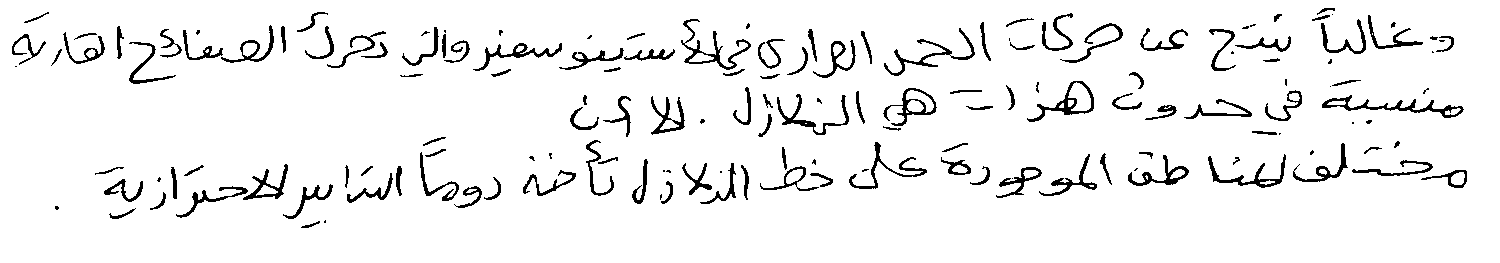 وغالباً ينتج عن حركات الحمل الحراري في الأستينوسفير والتي تحرك الصفائح القارية
متسببة في حدوث هزات هي الزلازل. إلا أن
مختلف المناطق الموجودة على خط الزلازل تأخذ دوماً التدابير الاحترازية.